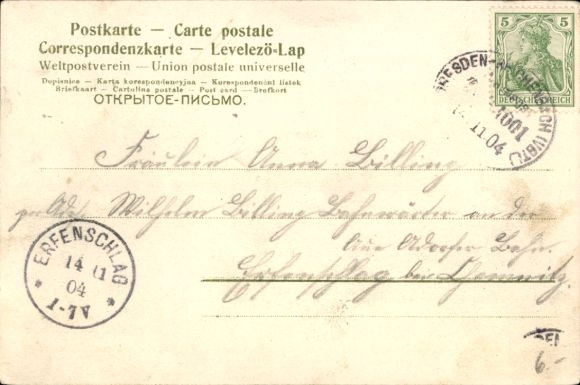 Postkarte — Carte postale
Correspondenzkarte — Levelező-Lap
Weltpostverein — Union postale universelle
Dopisnice — Karta korespondencyjna — Korespondenčni listek
Briefkaart — Cartolina postale — Post card — Brefkort
ОТКРЫТОЕ-ПИСЬМО.
5 5
DEUTSCHES REICH
DRESDEN-REICHENBACH (VGTL)
1001
11.04
Fräulein Anna Billing
Wilhelm Billing Bahnwärter an der
Aue Adorfer Bahn.
Erfenschlag bei Chemnitz.
* ERFENSCHLAG *
14 11
04
1-7V
6.-